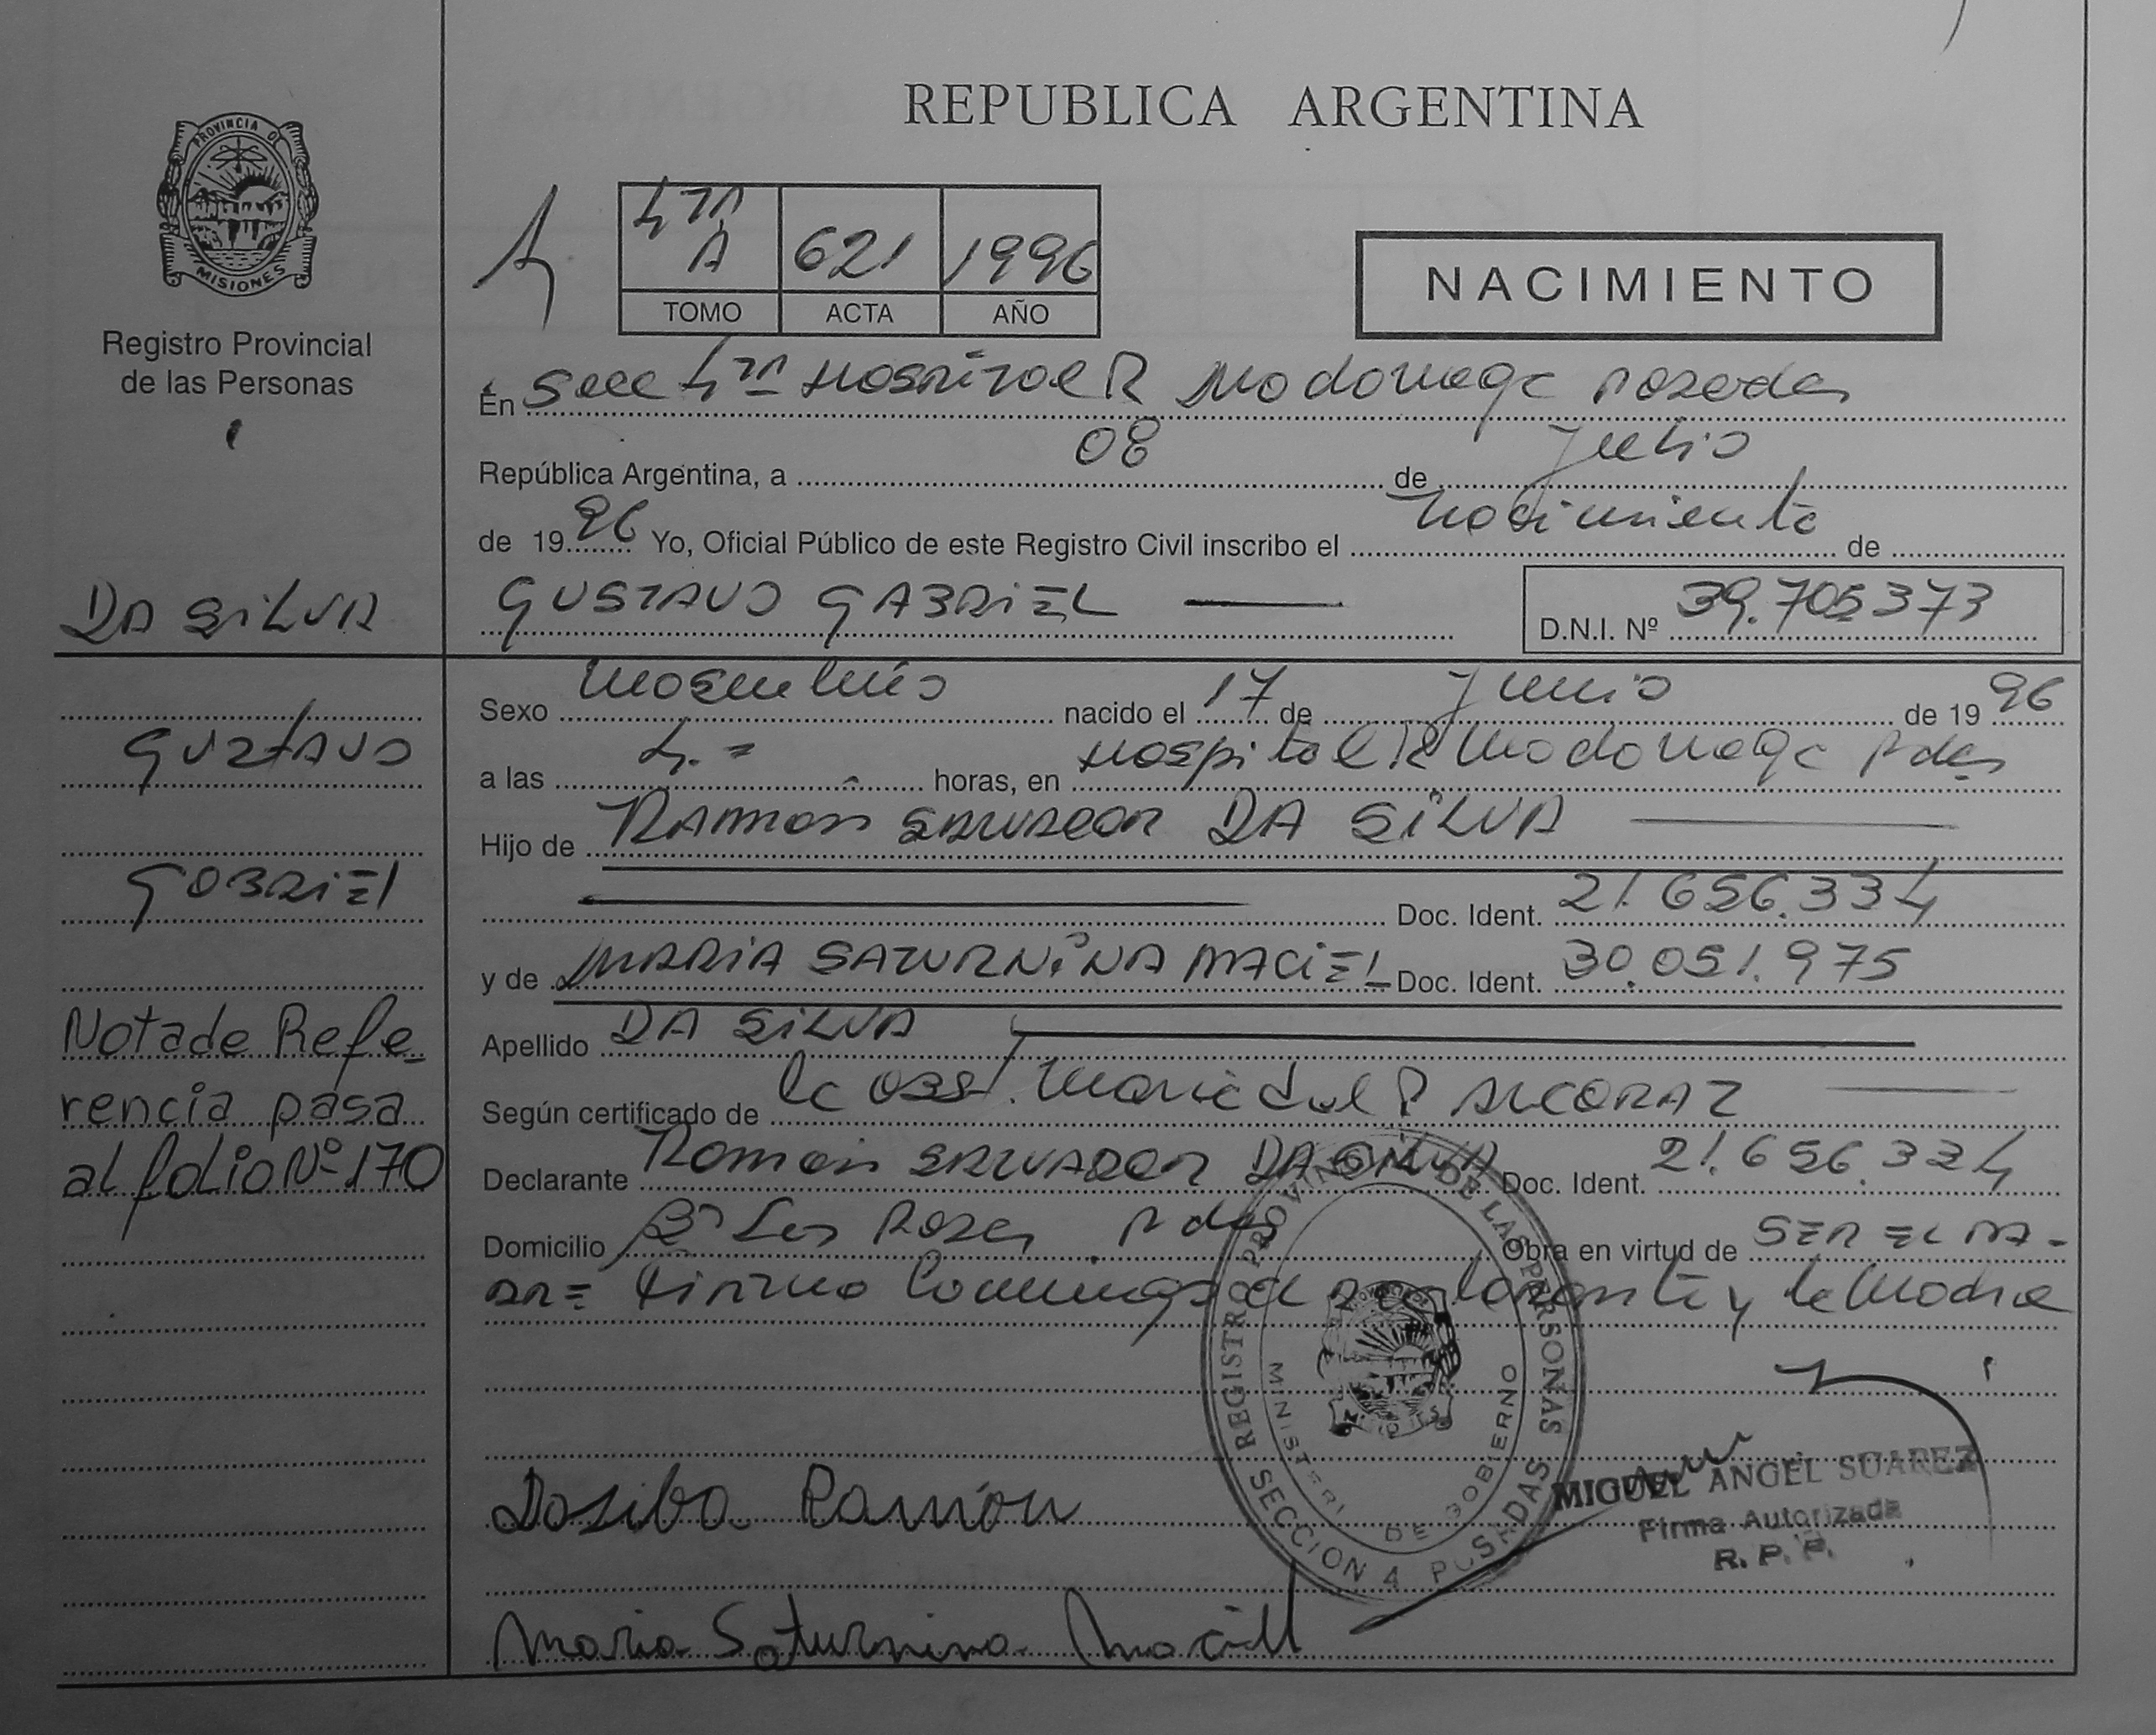 REPUBLICA ARGENTINA
PROVINCIA DE
MISIONES
Registro Provincial
de las Personas
4ta
A 621 1996
TOMO ACTA AÑO
NACIMIENTO
En Secc 4ta Hospital R Madariaga Posadas
República Argentina, a 08 de Julio
de 1996 Yo, Oficial Público de este Registro Civil inscribo el Nacimiento de
DA SILVA
GUSTAVO GABRIEL
D.N.I. Nº 39.705373
Sexo Masculino nacido el 17 de Junio de 1996
GUSTAVO
a las 4.= horas, en Hospital R Madariaga Pdas
Hijo de RAMON SALVADOR DA SILVA
GABRIEL
Doc. Ident. 21.656.334
y de MARIA SATURNINA MACIEL Doc. Ident. 30.051.975
Nota de Refe-
rencia pasa
al folio Nº 170
Apellido DA SILVA
Según certificado de la Obst. Maria del P ALCORAZ
Declarante Ramon SALVADOR DA SILVA Doc. Ident. 21.656.334
Domicilio Bº Las Rosas Pdas Obra en virtud de SER EL PA-
DRE Firman Conmigo el declarante y la Madre
REGISTRO PROVINCIAL DE LAS PERSONAS
MINISTERIO DE GOBIERNO
SECCION 4 POSADAS
MIGUEL ANGEL SUAREZ
Firma Autorizada
R. P. P.
Dasilva Ramón
Maria Saturnina Maciel